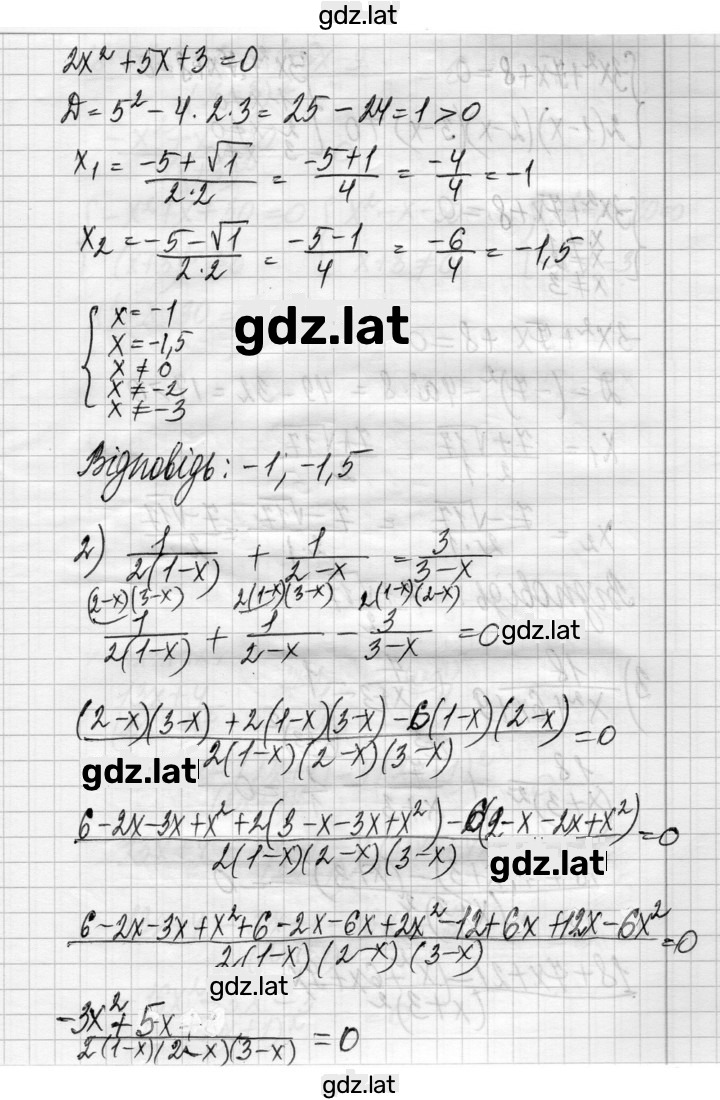 gdz.lat
2x² + 5x + 3 = 0
Д = 5² - 4 · 2 · 3 = 25 - 24 = 1 > 0
x₁ = (-5 + √1)/(2·2) = (-5+1)/4 = -4/4 = -1
x₂ = (-5 - √1)/(2·2) = (-5-1)/4 = -6/4 = -1,5
{ x = -1
x = -1,5
gdz.lat
x ≠ 0
x ≠ -2
x ≠ -3
Відповідь: -1; -1,5
2) 1/(2(1-x)) + 1/(2-x) = 3/(3-x)
(2-x)(3-x) 2(1-x)(3-x) 2(1-x)(2-x)
1/(2(1-x)) + 1/(2-x) - 3/(3-x) = 0
gdz.lat
((2-x)(3-x) + 2(1-x)(3-x) - 6(1-x)(2-x))/(2(1-x)(2-x)(3-x)) = 0
gdz.lat
(6-2x-3x+x²+2(3-x-3x+x²)-6(2-x-2x+x²))/(2(1-x)(2-x)(3-x)) = 0
gdz.lat
(6-2x-3x+x²+6-2x-6x+2x²-12+6x+12x-6x²)/(2(1-x)(2-x)(3-x)) = 0
gdz.lat
(-3x²+5x)/(2(1-x)(2-x)(3-x)) = 0
gdz.lat